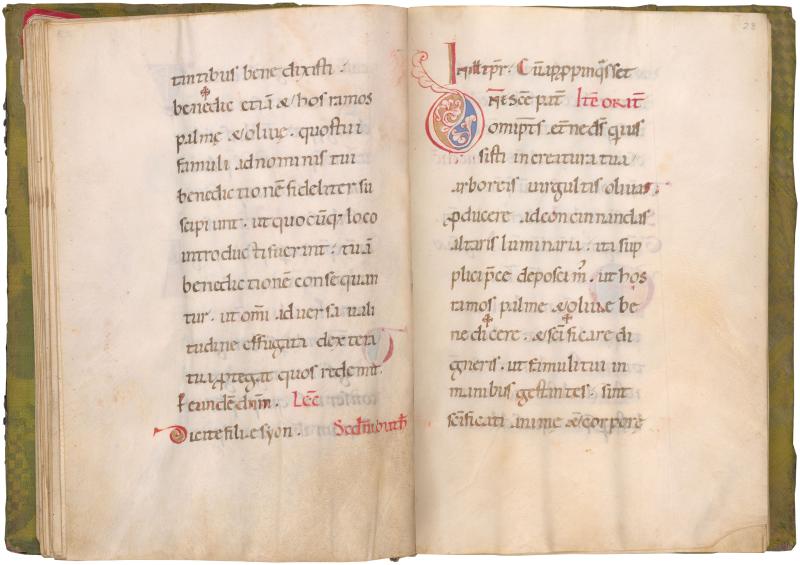 tantibus benedixisti .
benedic etiā & hos ramos
palmę & olivę . quos tui
famuli ad nominis tui
benedictionē fideliter su
scipiunt . ut quocūq; loco
introducti fuerint . tuā
benedictionē consequan
tur . ut om̄i adversa vali
tudine effugata dextera
tua ꝓtegat quos redemit .
ꝑ eundē dn̄m . Lēc
Dicite filie syon . Scd̄m Math̄
28
In ill tp̄r . Cū apꝓpinq̄sset
Itē orat̄
Omip̄ts et̄ne ds̄ q̇ ius
sisti in creatura tua
arboreis virgultis olivas
ꝓducere ad concinnandas
altaris luminaria . ita sup
plici p̄ce deposcim̄ . ut hos
ramos palme & olivae be
nedicere . & sc̄ificare di
gneris . ut famuli tui in
manibus gestantes . sint
sc̄ificati anime & corpore